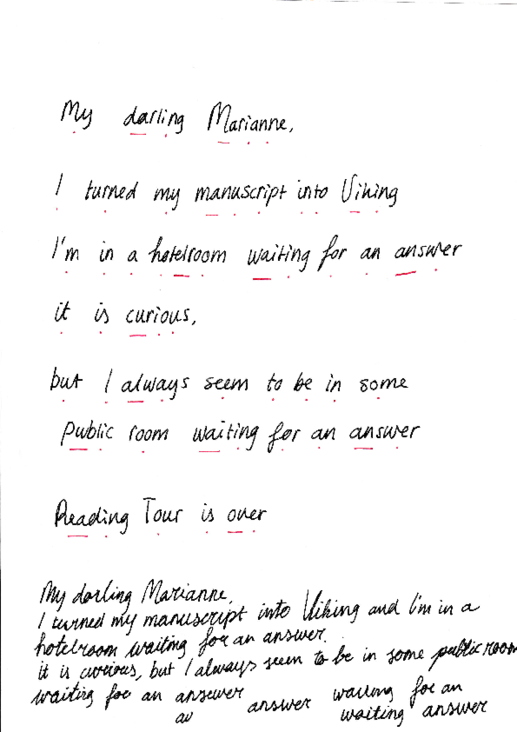 My darling Marianne,
I turned my manuscript into Viking
I'm in a hotelroom waiting for an answer
it is curious,
but I always seem to be in some
public room waiting for an answer
Reading Tour is over
My darling Marianne,
I turned my manuscript into Viking and I'm in a
hotelroom waiting for an answer.
it is curious, but I always seem to be in some public room
waiting for an answer answer waiting for an
aw waiting answer